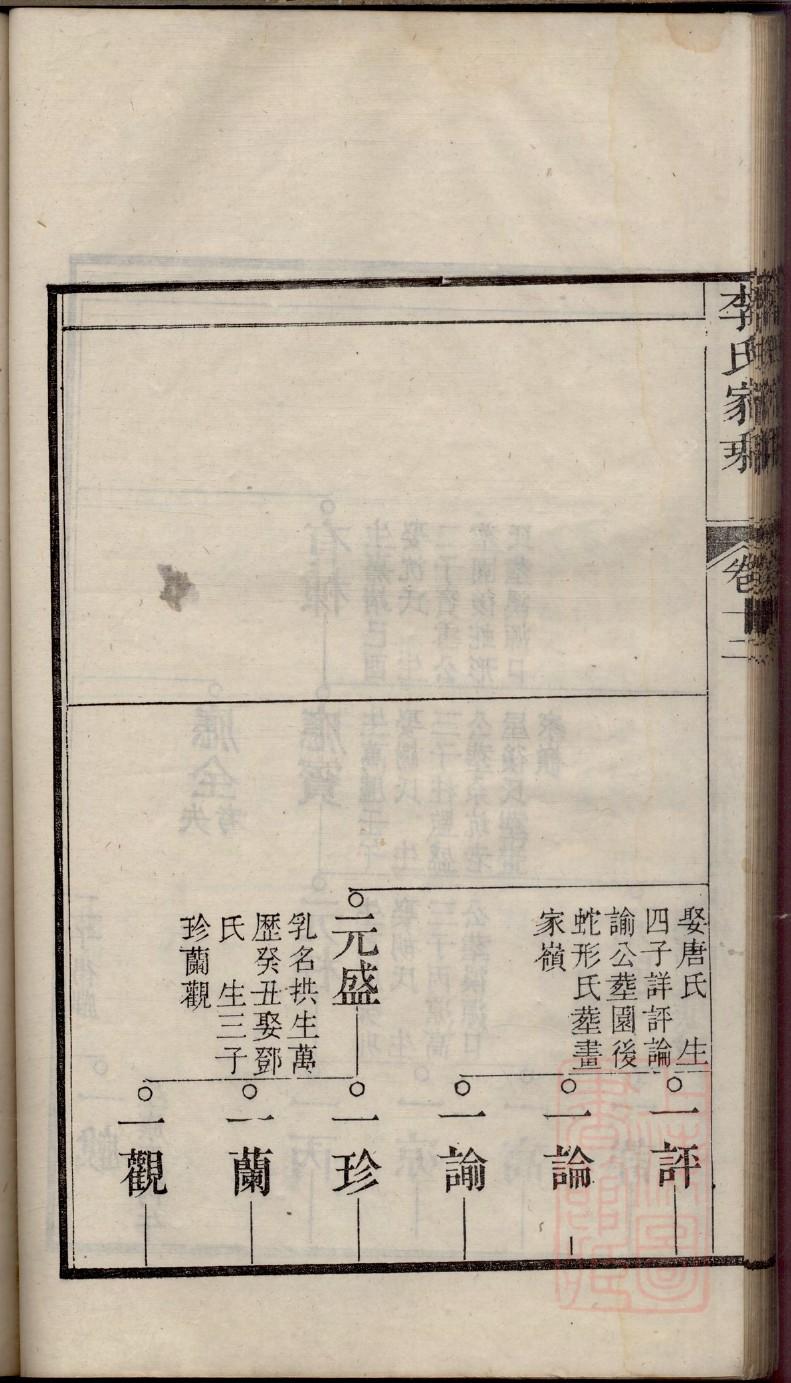 李氏家乘
卷十二
娶唐氏 生
四子詳評論
諭公塟園後
蛇形氏塟畫
家嶺
元盛
乳名拱生萬
歷癸丑娶鄧
氏 生三子
珍蘭觀
一評
一論
一諭
一珍
一蘭
一觀